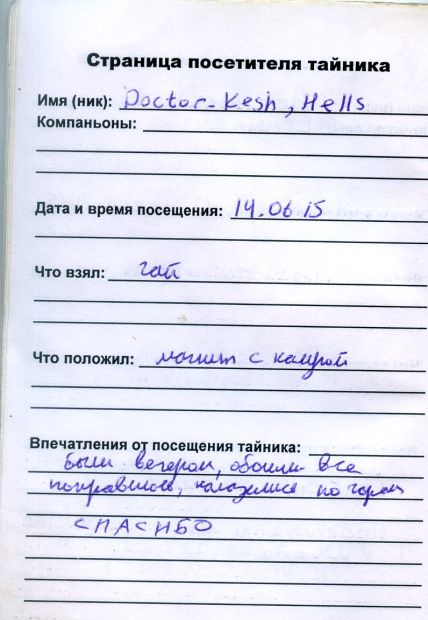 Страница посетителя тайника
Имя (ник): Doctor-Kesh, Hells
Компаньоны:
Дата и время посещения: 14.06.15
Что взял: чай
Что положил: магнит с калугой
Впечатления от посещения тайника:
были вечером, обоим все
понравилось, налазелись по горам
СПАСИБО